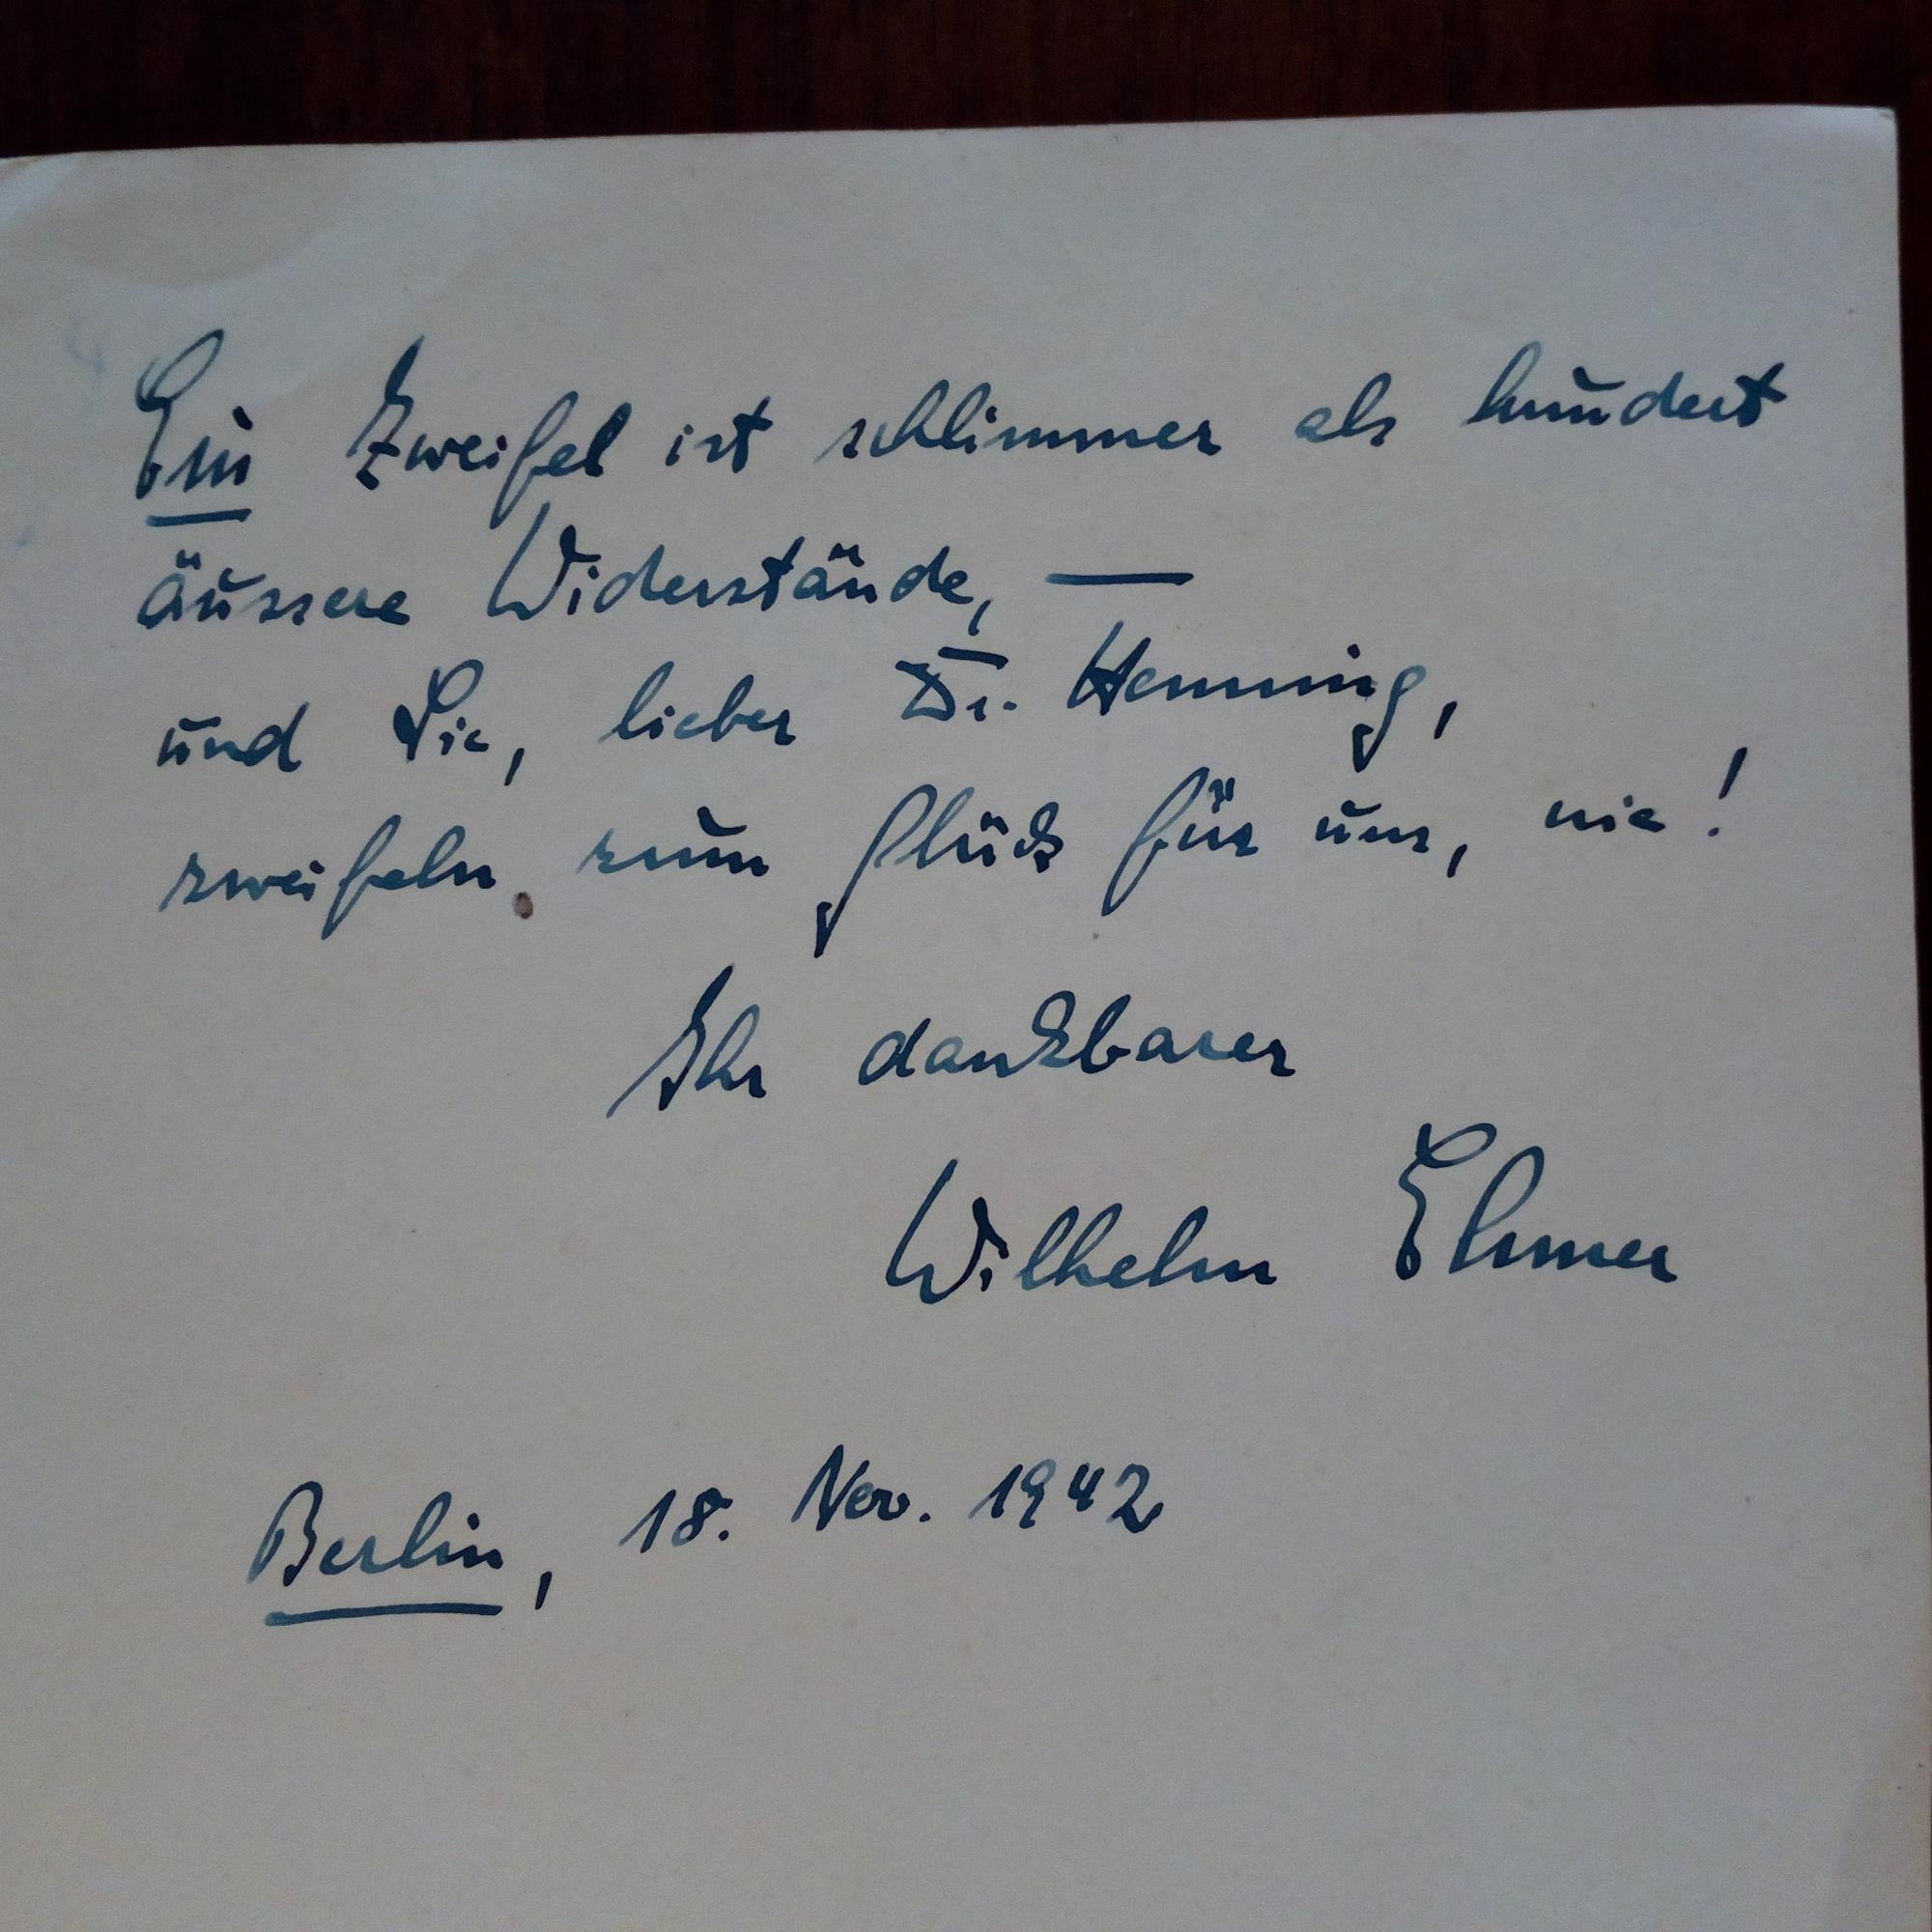 Ein Zweifel ist schlimmer als hundert
äussere Widerstände, —
und Sie, lieber Dr. Henning,
zweifeln zum Glück für uns, nie!
Ihr dankbarer
Wilhelm Ehmer
Berlin, 18. Nov. 1942